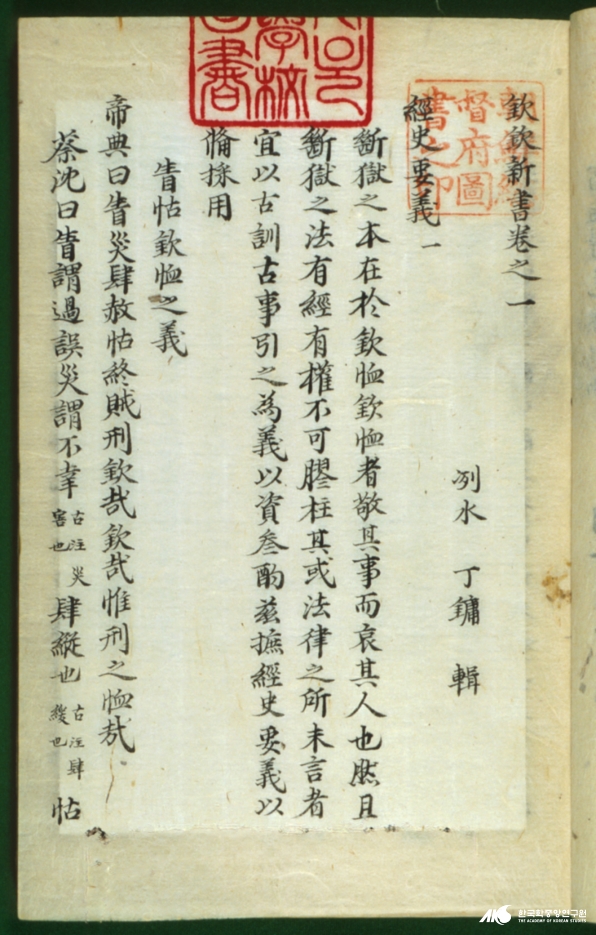 欽欽新書卷之一
洌水 丁鏞 輯
經史要義一
斷獄之本在於欽恤欽恤者敬其事而哀其人也然且
斷獄之法有經有權不可膠柱其或法律之所未言者
宜以古訓古事引之為義以資叅酌茲摭經史要義以
備採用
眚怙欽恤之義
帝典曰眚災肆赦怙終賊刑欽哉欽哉惟刑之恤哉
蔡沈曰眚謂過誤災謂不幸古注災害也肆縱也古注肆緩也怙
朝鮮總督府圖書之印
學校
한국학중앙연구원
THE ACADEMY OF KOREAN STUDIES